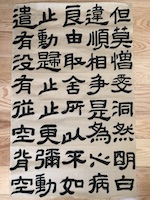 但莫憎愛洞然明白
違順相爭是為心病
良由取舍所以不如
止動歸止止更彌動
遣有没有從空背空